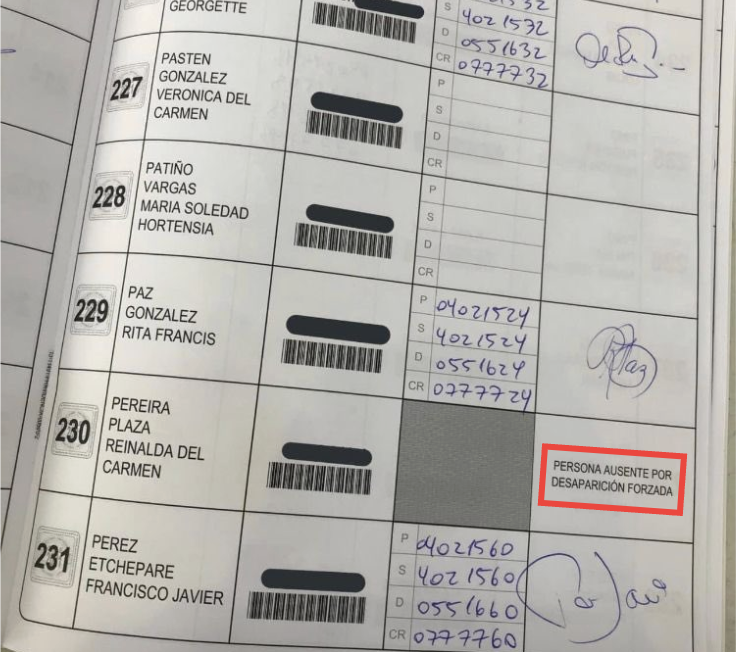 GEORGETTE
S 4021572
D 0551632
CR 0777732
227
PASTEN
GONZALEZ
VERONICA DEL
CARMEN
P
S
D
CR
228
PATIÑO
VARGAS
MARIA SOLEDAD
HORTENSIA
P
S
D
CR
229
PAZ
GONZALEZ
RITA FRANCIS
P 04021524
S 4021524
D 0551624
CR 0777724
230
PEREIRA
PLAZA
REINALDA DEL
CARMEN
PERSONA AUSENTE POR
DESAPARICIÓN FORZADA
231
PEREZ
ETCHEPARE
FRANCISCO JAVIER
P 04021560
S 4021560
D 0551660
CR 0777760